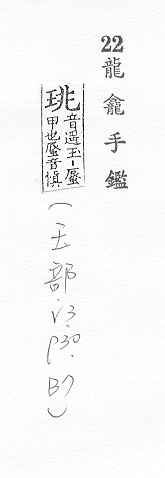 22 龍龕手鑑
珧音遥玉-蜃
甲也蜃音慎
(玉部.13.P30.B7)